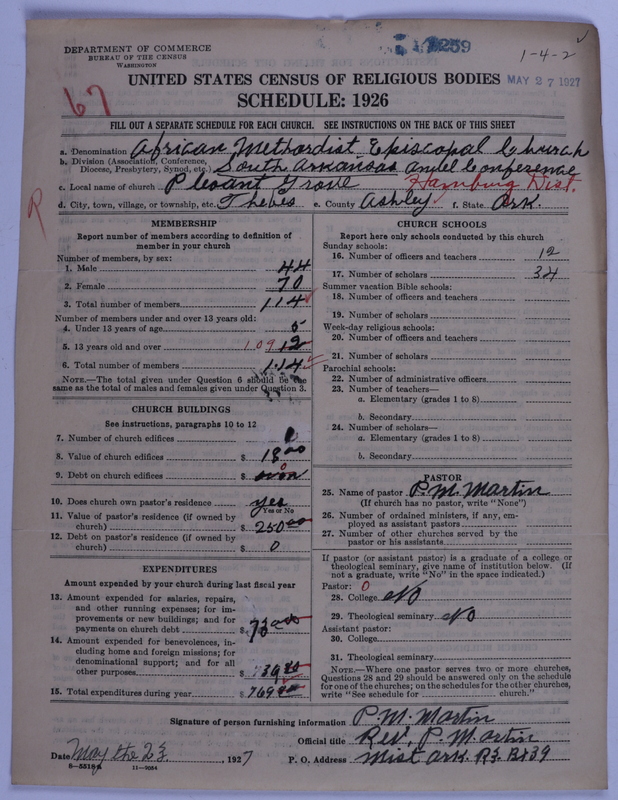 DEPARTMENT OF COMMERCE
BUREAU OF THE CENSUS
WASHINGTON
259
1-4-2
UNITED STATES CENSUS OF RELIGIOUS BODIES
MAY 27 1927
SCHEDULE: 1926
67
FILL OUT A SEPARATE SCHEDULE FOR EACH CHURCH. SEE INSTRUCTIONS ON THE BACK OF THIS SHEET
a. Denomination African Methordist Episcopal Church
b. Division (Association, Conference, Diocese, Presbytery, Synod, etc.) South Arkansas Conference
c. Local name of church Plesant Grove Hamburg Dist.
d. City, town, village, or township, etc. Thebes e. County Ashley f. State Ark.
R
MEMBERSHIP
Report number of members according to definition of
member in your church
Number of members, by sex:
1. Male 44
2. Female 70
3. Total number of members 114
Number of members under and over 13 years old:
4. Under 13 years of age 5
5. 13 years old and over 109 12
6. Total number of members 114
NOTE.—The total given under Question 6 should be the
same as the total of males and females given under Question 3.
CHURCH BUILDINGS
See instructions, paragraphs 10 to 12
7. Number of church edifices 1
8. Value of church edifices $ 1800
9. Debt on church edifices $ 0
10. Does church own pastor's residence yes
Yes or No
11. Value of pastor's residence (if owned by
church) $ 250 00
12. Debt on pastor's residence (if owned by
church) $ 0
EXPENDITURES
Amount expended by your church during last fiscal year
13. Amount expended for salaries, repairs,
and other running expenses; for im-
provements or new buildings; and for
payments on church debt $
14. Amount expended for benevolences, in-
cluding home and foreign missions; for
denominational support; and for all
other purposes $
15. Total expenditures during year $ 769
CHURCH SCHOOLS
Report here only schools conducted by this church
Sunday schools:
16. Number of officers and teachers 12
17. Number of scholars 34
Summer vacation Bible schools:
18. Number of officers and teachers
19. Number of scholars
Week-day religious schools:
20. Number of officers and teachers
21. Number of scholars
Parochial schools:
22. Number of administrative officers
23. Number of teachers—
a. Elementary (grades 1 to 8)
b. Secondary
24. Number of scholars—
a. Elementary (grades 1 to 8)
b. Secondary
PASTOR
25. Name of pastor P. M. Martin
(If church has no pastor, write "None")
26. Number of ordained ministers, if any, em-
ployed as assistant pastors
27. Number of other churches served by the
pastor or his assistants
If pastor (or assistant pastor) is a graduate of a college or
theological seminary, give name of institution below. (If
not a graduate, write "No" in the space indicated.)
Pastor: 0
28. College No
29. Theological seminary No
Assistant pastor:
30. College
31. Theological seminary
NOTE.—Where one pastor serves two or more churches,
Questions 28 and 29 should be answered only on the schedule
for one of the churches; on the schedules for the other churches,
write "See schedule for church."
Signature of person furnishing information P. M. Martin
Official title Rev. P. M. Martin
Date May the 23, 1927 P. O. Address Mist Ark. R3. Bx 39
11—9684